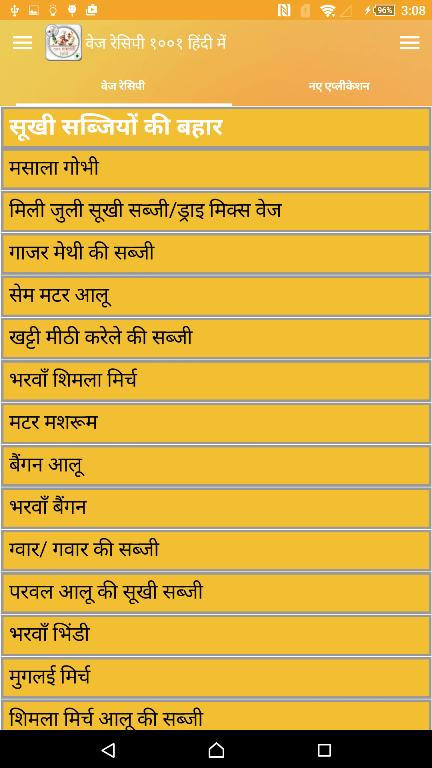 96%
3:08
वेज रेसिपी १००१ हिंदी में
वेज रेसिपी
नए एप्लीकेशन
सूखी सब्जियों की बहार
मसाला गोभी
मिली जुली सूखी सब्जी/ड्राइ मिक्स वेज
गाजर मेथी की सब्जी
सेम मटर आलू
खट्टी मीठी करेले की सब्जी
भरवाँ शिमला मिर्च
मटर मशरूम
बैंगन आलू
भरवाँ बैंगन
ग्वार/ गवार की सब्जी
परवल आलू की सूखी सब्जी
भरवाँ भिंडी
मुगलई मिर्च
शिमला मिर्च आलू की सब्जी